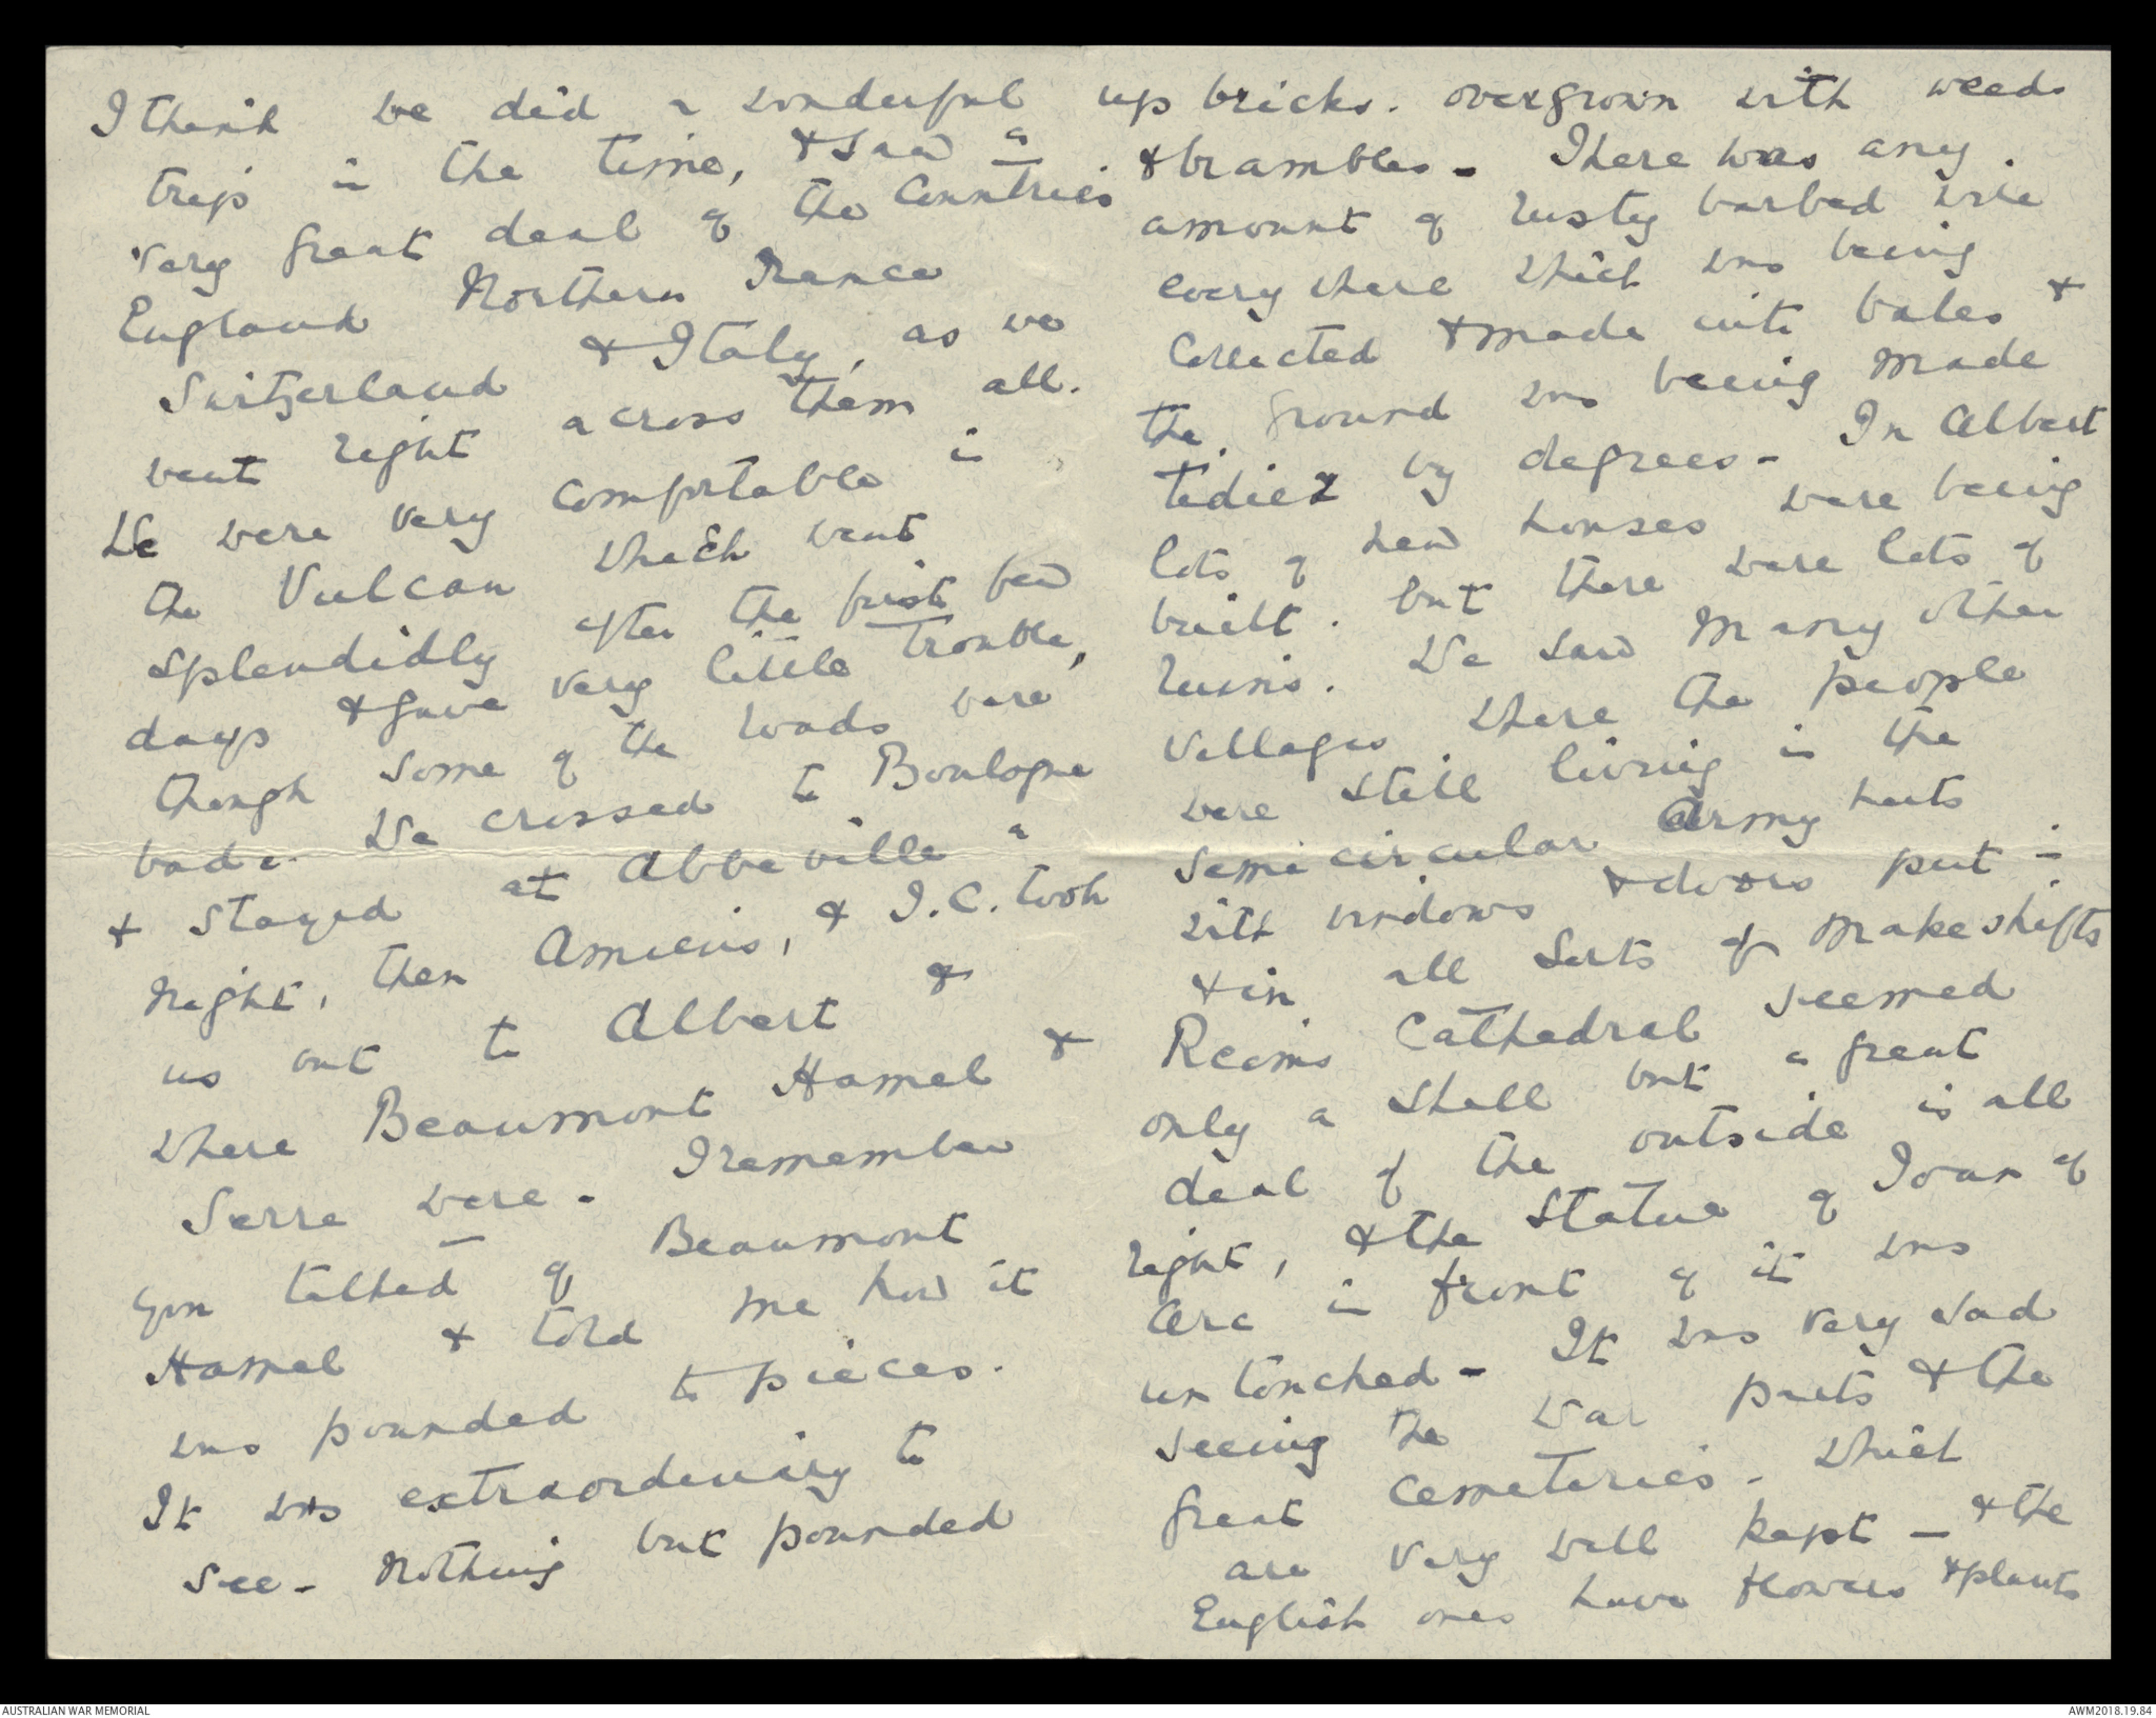 I think we did a wonderful
trip in the time, & saw a
very great deal of the Countries
England Northern France
Switzerland & Italy, as we
went right across them all.
We were very comfortable in
the Vulcan which went
splendidly after the first few
days & gave very little trouble,
though some of the roads were
bad. We crossed to Boulogne
& stayed at Abbeville a
night, then Amiens, & I.C. took
us out to Albert &
where Beaumont Hamel &
Serre were. I remember
you talked of Beaumont
Hamel & told me how it
was pounded to pieces.
It was extraordinary to
see - nothing but pounded
up bricks. overgrown with weeds
& brambles - There was any
amount of rusty barbed wire
every where which was being
collected & made into bales &
the ground was being made
tidier by degrees - In Albert
lots of new houses were being
built. but there were lots of
ruins. We saw many other
villages where the people
were still living in the
semi circular Army huts
with windows & doors put in
& in all sorts of makeshifts
Reims Cathedral seemed
only a shell but a great
deal of the outside is all
right, & the statue of Joan of
Arc in front of it was
un touched - It was very sad
seeing the war parts & the
great cemeteries - which
are very well kept - & the
English ones have flowers & plants
AUSTRALIAN WAR MEMORIAL
AWM2018.19.84